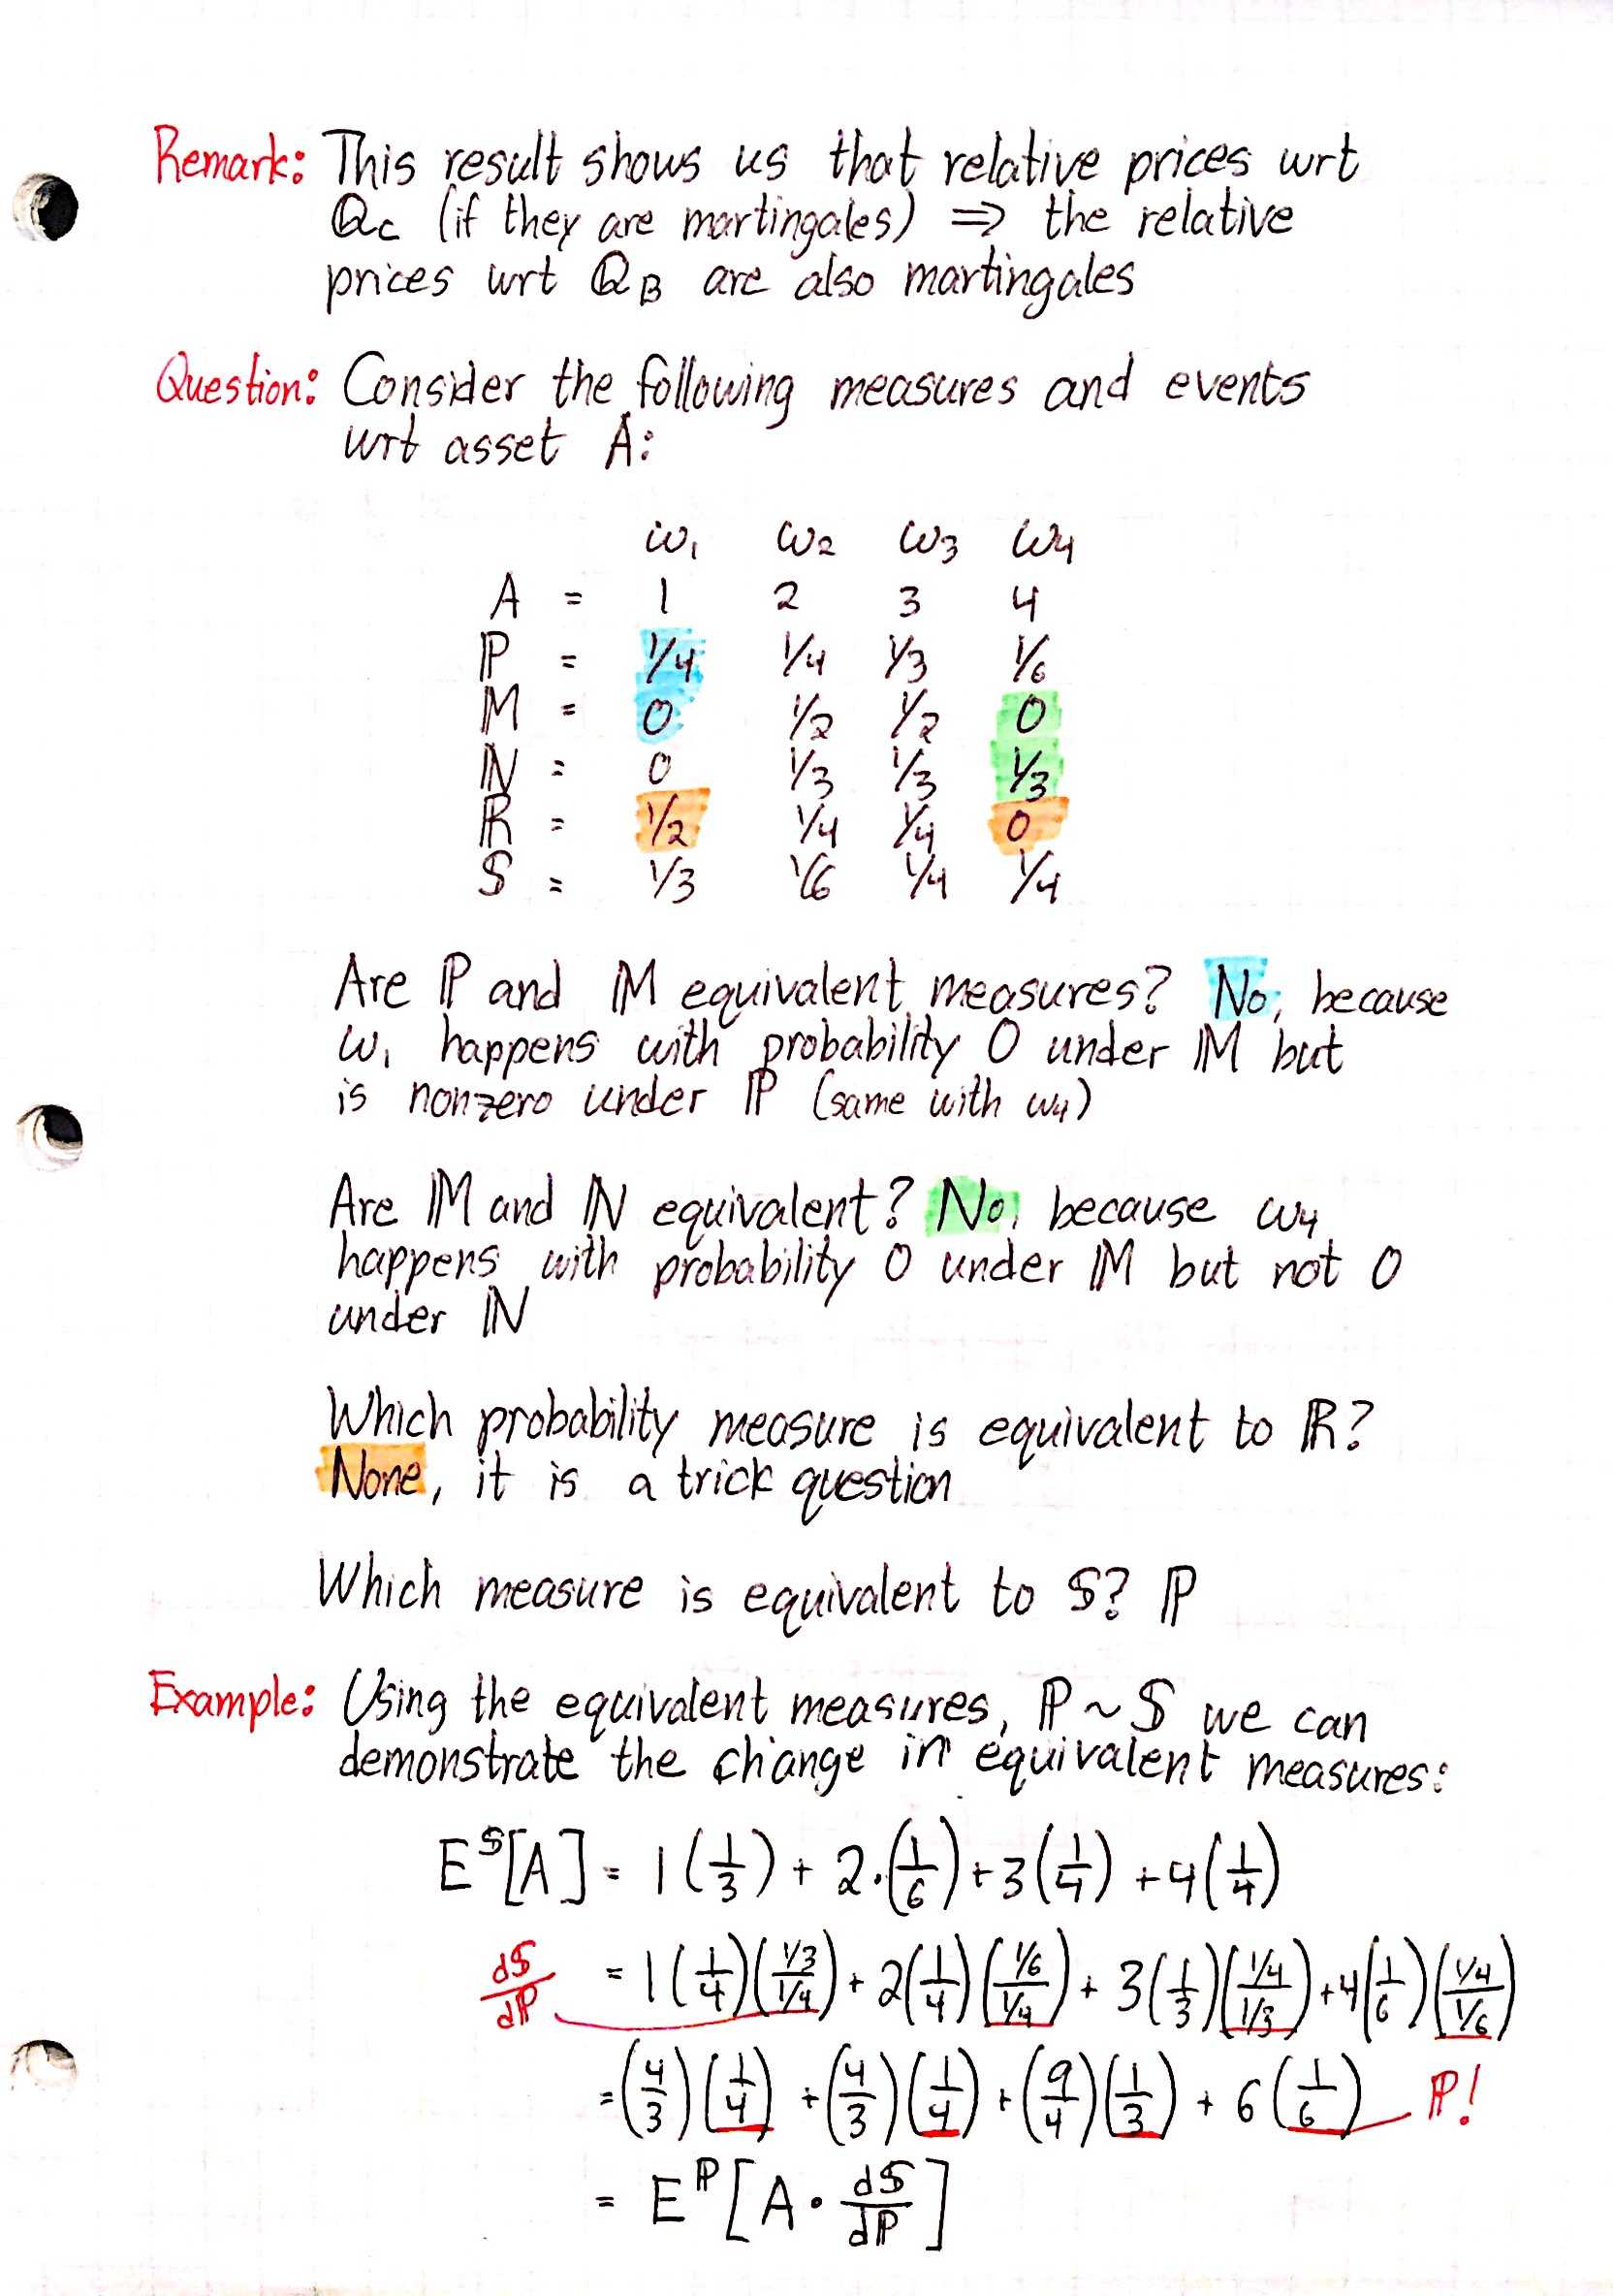 Remark: This result shows us that relative prices wrt
ℚc (if they are martingales) ⇒ the relative
prices wrt ℚB are also martingales
Question: Consider the following measures and events
wrt asset A:
ω₁ ω₂ ω₃ ω₄
A = 1 2 3 4
ℙ = 1/4 1/4 1/3 1/6
𝕄 = 0 1/2 1/2 0
ℕ = 0 1/3 1/3 1/3
ℝ = 1/2 1/4 1/4 0
𝕊 = 1/3 1/6 1/4 1/4
Are ℙ and 𝕄 equivalent measures? No, because
ω₁ happens with probability 0 under 𝕄 but
is nonzero under ℙ (same with ω₄)
Are 𝕄 and ℕ equivalent? No, because ω₄
happens with probability 0 under 𝕄 but not 0
under ℕ
Which probability measure is equivalent to ℝ?
None, it is a trick question
Which measure is equivalent to 𝕊? ℙ
Example: Using the equivalent measures, ℙ ~ 𝕊 we can
demonstrate the change in equivalent measures:
E^𝕊[A] = 1(1/3) + 2·(1/6) + 3(1/4) + 4(1/4)
d𝕊/dℙ = 1(1/4)((1/3)/(1/4)) + 2(1/4)((1/6)/(1/4)) + 3(1/3)((1/4)/(1/3)) + 4(1/6)((1/4)/(1/6))
= (4/3)(1/4) + (4/3)(1/4) + (9/4)(1/3) + 6(1/6) ℙ!
= E^ℙ[A · d𝕊/dℙ]